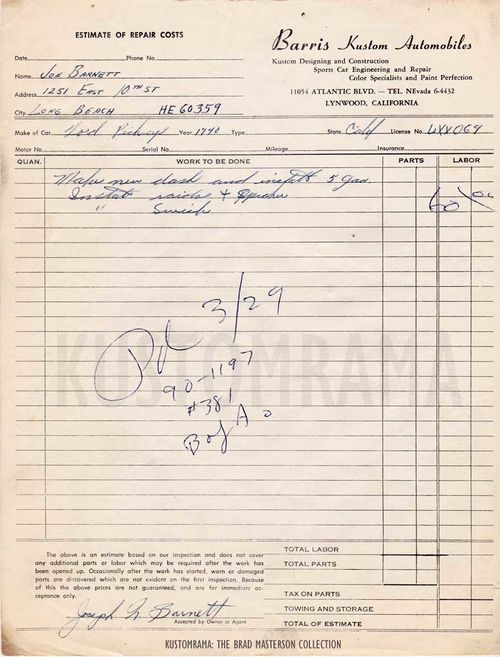 ESTIMATE OF REPAIR COSTS
Barris Kustom Automobiles
Kustom Designing and Construction
Sports Car Engineering and Repair
Color Specialists and Paint Perfection
11054 ATLANTIC BLVD. — TEL. NEvada 6-4432
LYNWOOD, CALIFORNIA
Date Phone No.
Name JOE BARNETT
Address 1251 EAST 10TH ST
City LONG BEACH HE 60359
Make of Car Ford Pickup Year 1940 Type State Calif License No.
Motor No. Serial No. Mileage Insurance
QUAN. WORK TO BE DONE PARTS LABOR
Make new dash and install 5 gas.
60
"
Pd 3/29
90-1197
#381
B of A
KUSTOMRAMA
The above is an estimate based on our inspection and does not cover
any additional parts or labor which may be required after the work has
been opened up. Occasionally after the work has started, worn or damaged
parts are discovered which are not evident on the first inspection. Because
of this the above prices are not guaranteed, and are for immediate ac-
ceptance only.
Joseph Barnett
Accepted by Owner or Agent
TOTAL LABOR
TOTAL PARTS
TAX ON PARTS
TOWING AND STORAGE
TOTAL OF ESTIMATE
KUSTOMRAMA: THE BRAD MASTERSON COLLECTION